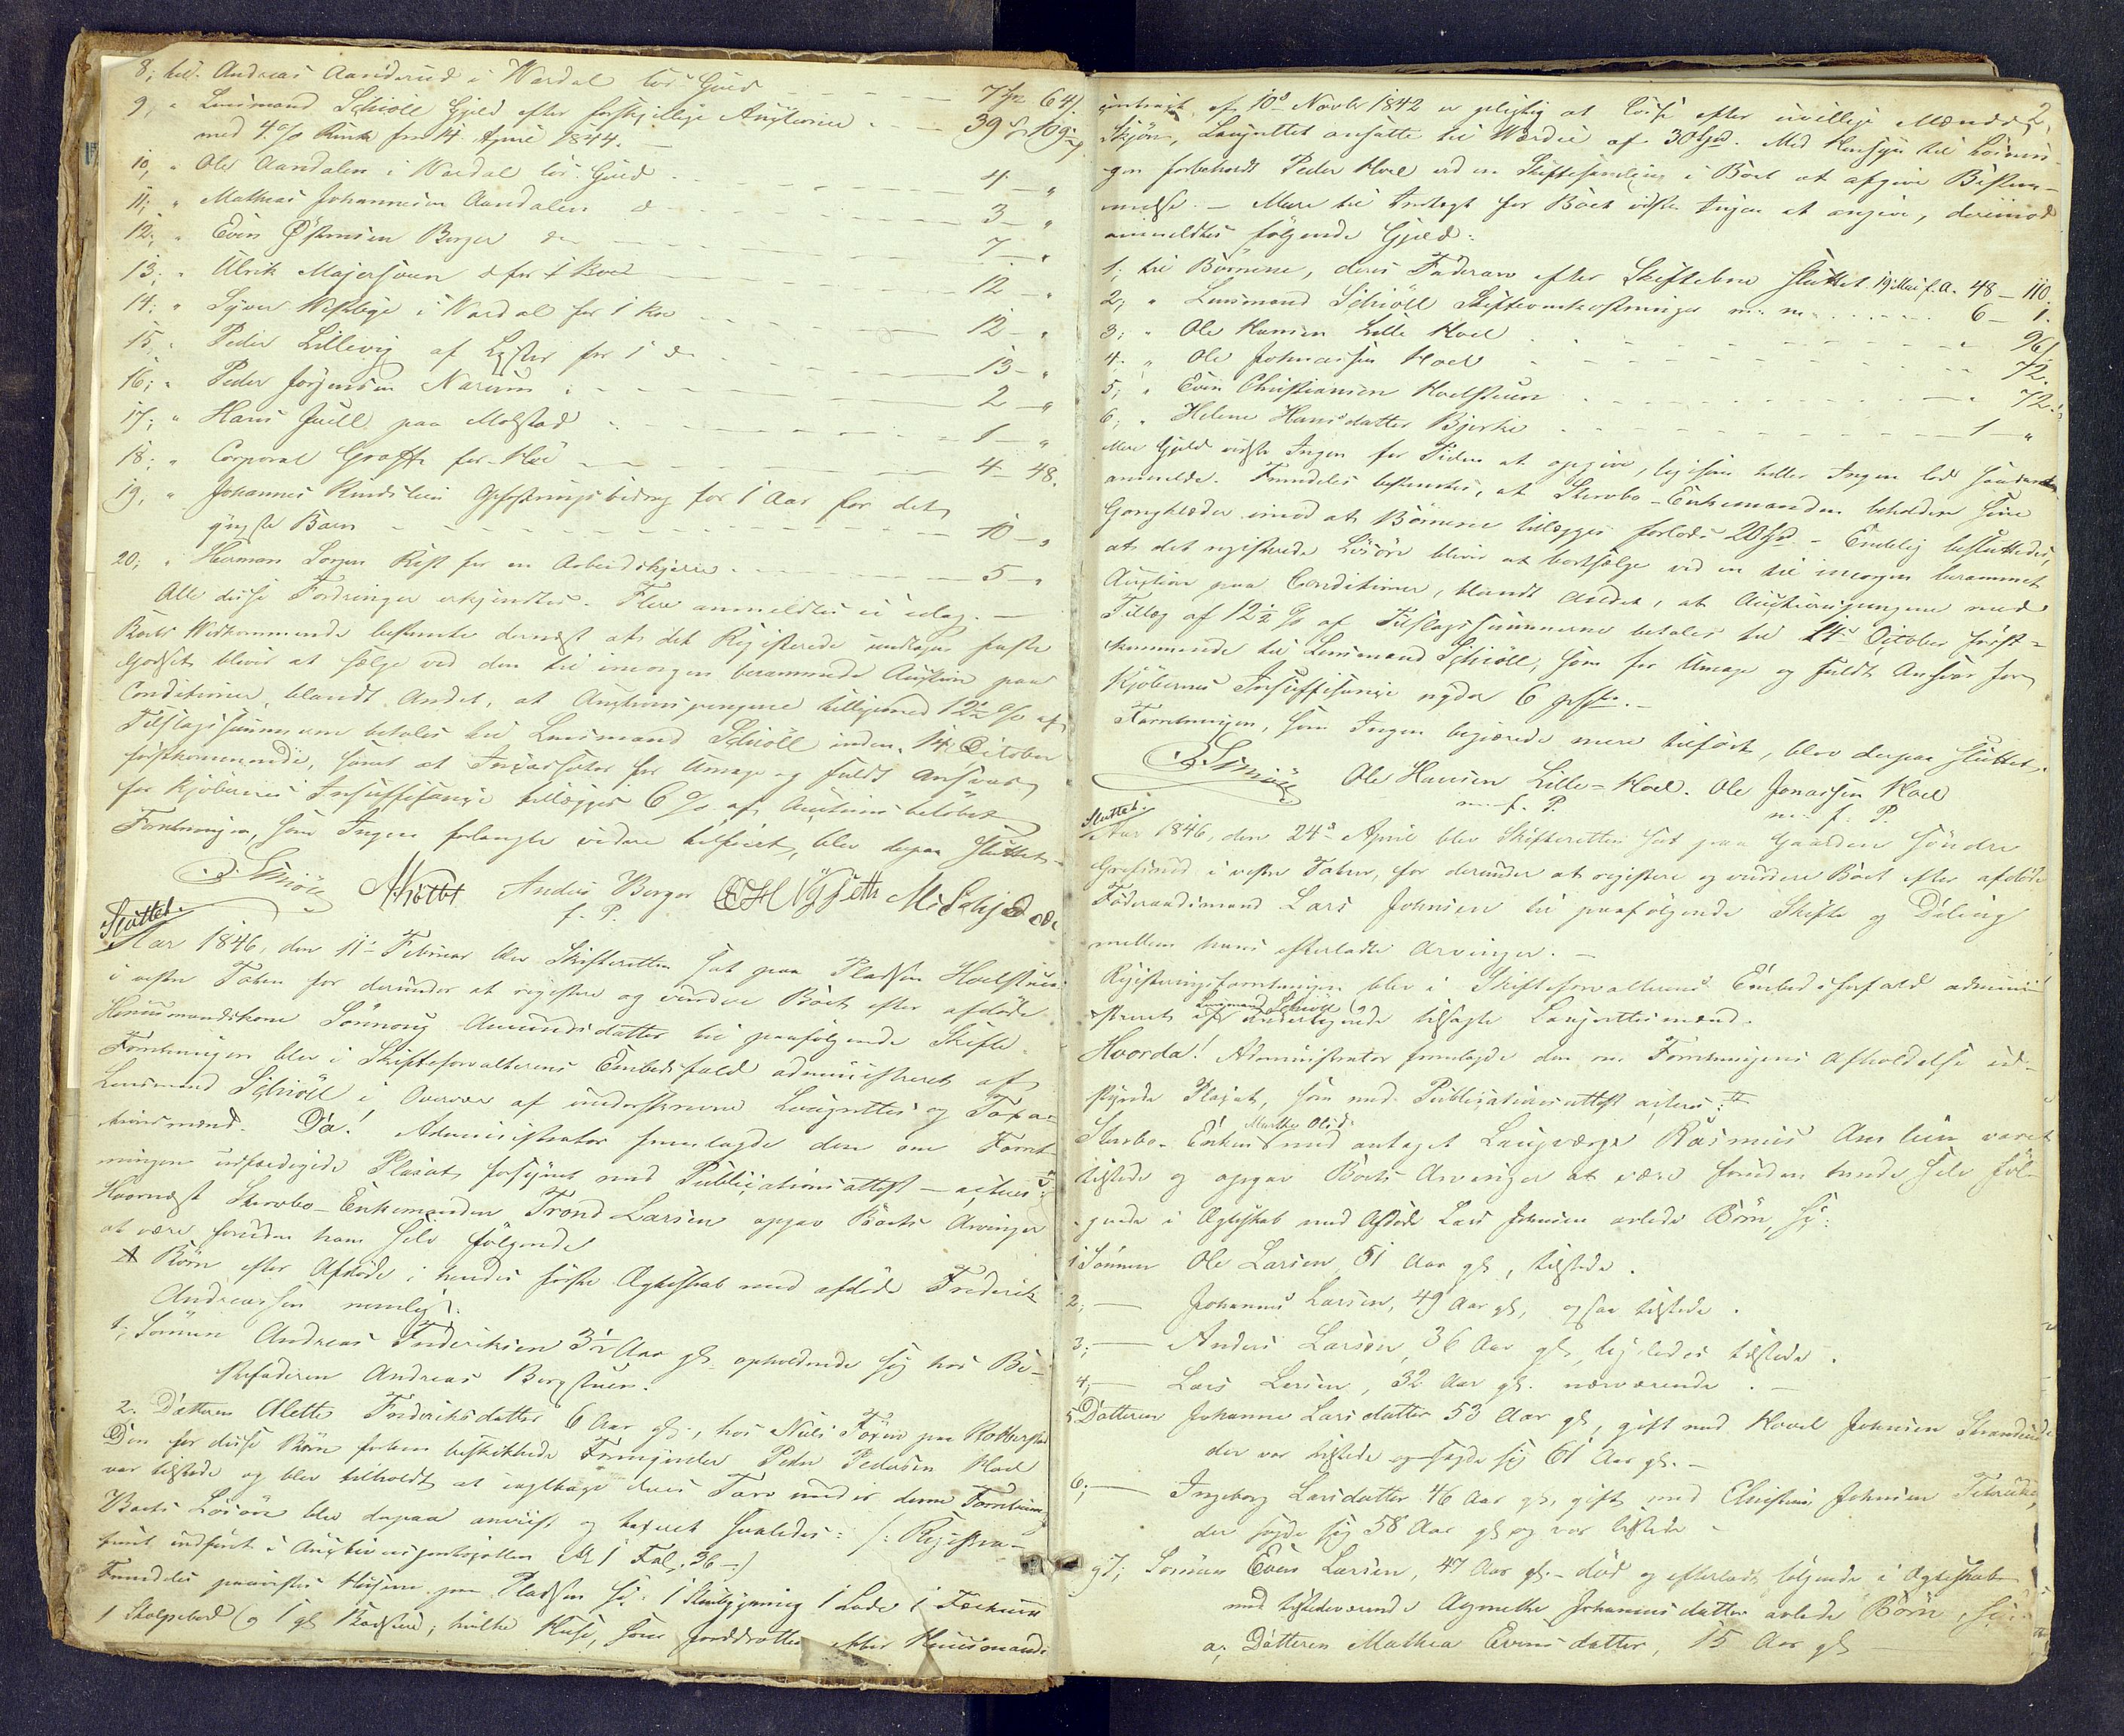 8; til Andreas Aanderud i Wardal lös Gjeld - 7 Spd 64 s
9; " Lensmand Schiöll Gjeld efter forskjellige Auctioner - 39 - 109
med 4 % Renter fra 14 April 1844. -
10, " Ole Aandalen i Wardal lös Gjeld - 4 - "
11; " Mathias Johannesen Aandalen d - 3 - "
12; " Even Østensen Berger do - 7 - "
13; " Ulrik Majersveen d for 1 Koe - 12 - "
14; " Syver i Wardal for 1 Koe - 12 - "
15; " Peder Lillevig af for 1 do - 13 - "
16; " Peder Jörgensen Narum - 2 - "
17; " Hans Juell paa Molstad - 1 - "
18; " Corporal Graff for Höe - 4 - 48.
19, " Johannes Rindslien Opfostringsbidrag for 1 Aar for det
yngste Barn - 10 - "
20; " Herman Rest for en Arbeidskjerre - 5 - "
Alle disse Fordringer erkjendtes. Flere anmeldtes ei idag. -
Boets Vedkommende bestemte dernæst at det Registerede undtagen faste
Godset bliver at sælge ved den til imorgen berammede Auction paa
Conditioner, blandt Andet, at Auctionspengene tilligemed 12½ % af
Tilslagssummerne betales til Lensmand Schiöll inden 14 October
førstkommende, samt at Incassator for Umage og fuldt Ansvar
for Kjöbernes Insufficience tillægges 6 % af Auctionsbelöbet
Forretningen, som Ingen forlangte videre tilfört, blev derpaa sluttet -
Schiöll Andreas Berger
f. P.
Sluttet.
Aar 1846, den 11te Februar blev Skifteretten sat paa Pladsen Hoelstuen
i vestre Toten for derunder at registere og vurdere Boet efter afdöde
Huusmandskone Sönnov Amundsdatter til paafölgende Skifte.
Forretningen blev i Skifteforvalterens Embedsfald administreret af
Lensmand Schiöll i Overvær af understevnede Laugrettes og Taxa-
tionsmænd. Da! Administrator fremlagde den om Forret-
ningen udfærdigede Placat forsynet med Publicationsattest - acteres:
Hvornæst Stervbo-Enkemanden Trond Larsen opgav Boets Arvinger
at være foruden ham selv fölgende
A Börn efter Afdöde i hendes förste Ægteskab med afdöde Frederik
Andreassen nemlig:
1; Sönnen Andreas Frederiksen 3½ Aar gl. opholdende sig hos Be-
stefaderen Andreas Bergstuen.
2. Datteren Alette Frederiksdatter 6 Aar gl., hos Niels paa
Den for disse Börn forhen beskikkede Formynder Peder Pedersen Hoel
var tilstede og blev tilholdt at iagttage deres Tarv under denne Forretning
Boets Lösöre blev derpaa anviist og taxeret saaledes: /: Registra-
tionen indfört i Auctionsprotocollen No 1 Fol. 36 -/
Fremdeles paavistes Husene paa Pladsen sc: 1 Stuebygning 1 Lade 1 Fæehuus
1 Stolpebod og 1 gl Badstue, hvilke Huse, som efter Huusmands

2,
contract af 10de Novbr 1842 er pligtig at löse efter uvillige Mænds
Skjön, Laugrettet ansatte til Værdie af 30 Spd. Med Hensyn til Lösnin-
gen forbeholdt Peder Hoel ved en Skiftesamling i Boet at afgive Bestem-
melse. - Mere til Indtægt for Boet vidste Ingen at angive, derimod
anmeldtes fölgende Gjeld:
1; til Börnene, deres Fædrearv efter Skiftebrev sluttet 19 Mai f. A. 48 - 110.
2; " Lensmand Schiöll Skifteomkostninger m. m. - 6 - 1.
3; " Ole Hansen Lille Hoel - " 96
4; " Ole Johnassen Hoel - " 72.
5; " Even Christiansen Hoelstuen - " 72.
6; " Helene Hansdatter Bjerke - 1 - "
Mere Gjeld vidste Ingen for Tiden at opgive, ligesom heller Ingen lod saadant
anmelde. Fremdeles bestemtes, at Stervbo-Enkemanden beholder sine
Gangklæder imod at Börnene tillægges forlods 20 Spd. - Endelig besluttedes,
at det registerede Lösöre bliver at bortsælge ved en til imorgen berammet
Auction paa Conditioner, blandt Andet, at Auctionspengene med
Tillæg af 12½ % af Tilslagssummerne betales til 14de October först-
kommende til Lensmand Schiöll, som for Umage og fuldt Ansvar for
Kjöbernes Insufficience nyder 6 pCt. -
Forretningen, som Ingen begjærede mere tilfört, blev derpaa sluttet.
Schiöll Ole Hansen Lille-Hoel. Ole Jonassen Hoel
m. f. P. m. f. P.
Sluttet.
Aar 1846, den 24de April blev Skifteretten sat paa Gaarden söndre
Grefsrud i vestre Toten, for derunder at registere og vurdere Boet efter afdöde
Föderaadsmand Lars Johnsen til paafölgende Skifte og Deling
mellem hans efterladte Arvinger. -
Registeringsforretningen blev i Skifteforvalterens Embedsforfald admini-
streret af Lensmand Schiöll og tilsagte Laugrettesmænd.
Hvorda! Administrator fremlagde den om Forretningens Afholdelse ud-
stædte Placat, som med Publicationsattest acteres:
Stervbo-Enken Marthe Olsd. med antaget Laugværge Rasmus Amlien varet
tilstede og opgav Boets Arvinger at være foruden hende selv föl-
gende i Ægteskab med Afdöde Lars Johnsen avlede Börn, sc:
1 Sönnen Ole Larsen 51 Aar gl, tilstede.
2; — Johannes Larsen, 49 Aar gl, ogsaa tilstede.
3; — Anders Larsen, 36 Aar gl, ligeledes tilstede.
4; — Lars Larsen, 32 Aar gl. nærværende. -
5 Datteren Johanne Larsdatter 53 Aar gl, gift med Hovel Johnsen
der var tilstede og sagde sig 61 Aar gl. -
6; — Ingeborg Larsdatter 46 Aar gl, gift med Christian Johnsen
der sagde sig 58 Aar gl og var tilstede -
7; Sönnen Even Larsen, 47 Aar gl. - död og efterladt fölgende i Ægteskab
med tilstedeværende Agnethe Johannesdatter avlede Börn, sc:
a; Datteren Mathea Evensdatter, 15 Aar gl